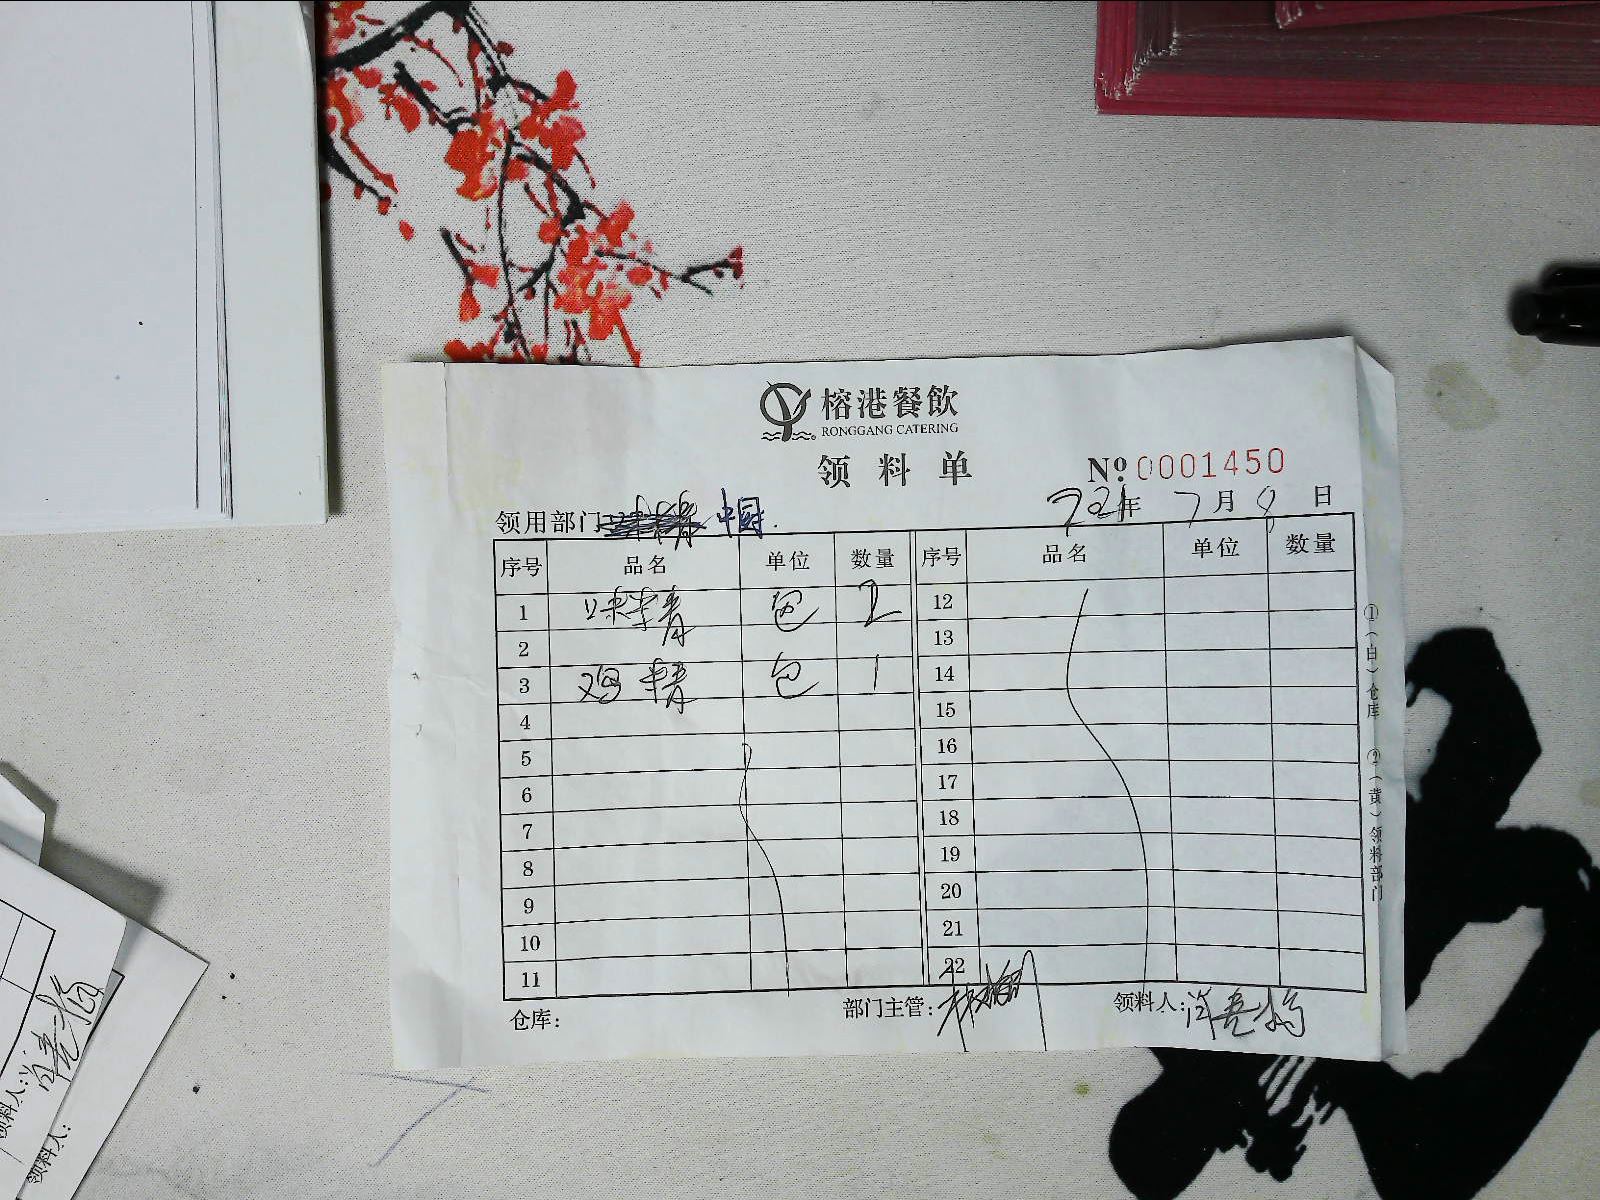 榕港餐飲
RONGGANG CATERING
领料单
№ 0001450
领用部门 中厨
221年 7月 8日
序号 品名 单位 数量 序号 品名 单位 数量
1 味精 包 2 12
2 13
3 鸡精 包 1 14
4 15
5 16
6 17
7 18
8 19
9 20
10 21
11 22
仓库: 部门主管: 领料人:
①(白)仓库 ②(黄)领料部门
领料人:
领料人: